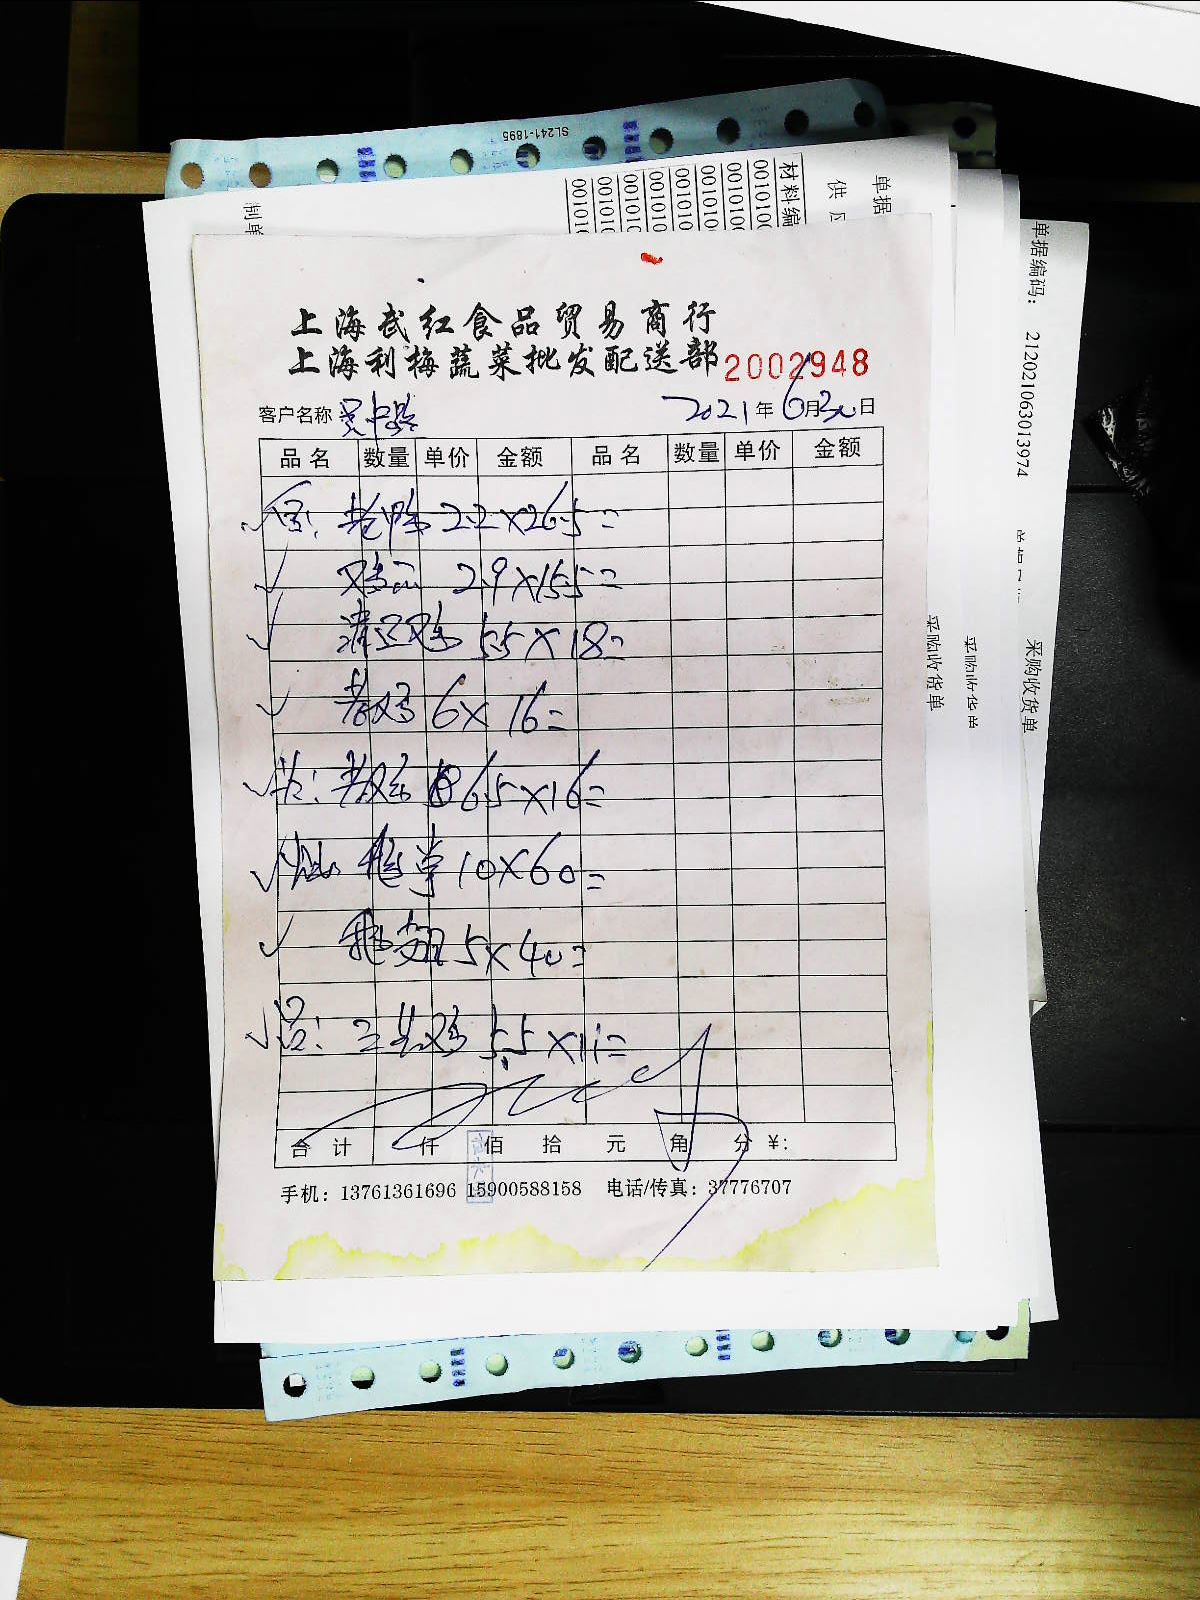 SL241-1895
制单
材料编
供
单据
单据编码： 2120210630139​74
采购收货单
采购收货单
采购收货单
上海武红食品贸易商行
上海利梅蔬菜批发配送部 2002948
客户名称 2021年6月30日
品名 数量 单价 金额 品名 数量 单价 金额
老鸭 2.2×26.5=
2.9×15.5=
55×18=
老鸡 6×16=
老鸡 6.5×16=
10×60=
翅 5×40=
三黄鸡 5.5×11=
合计 仟 佰 拾 元 角 分 ¥:
手机：13761361696 15900588158 电话/传真：37776707